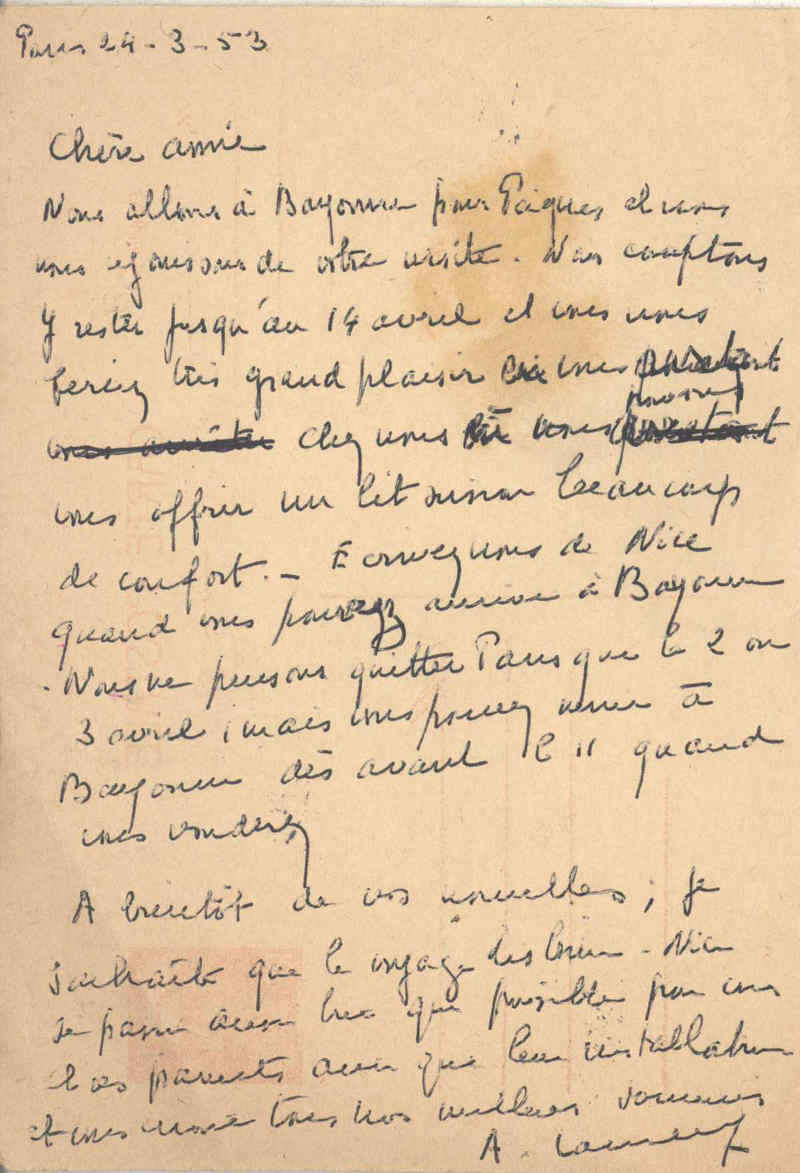 Paris 24-3-53
Chère amie
Nous allons à Bayonne pour Pâques et nous
nous réjouissons de votre visite. Nous comptons
y rester jusqu'au 14 avril et vous nous
feriez très grand plaisir
chez nous où nous pouvons
vous offrir un lit sinon beaucoup
de confort. – Ecrivez nous de Nice
quand vous pourrez arriver à Bayonne
. Nous ne pensons quitter Paris que le 2 ou
3 avril, mais vous pouvez venir à
Bayonne dès avant le 11 quand
vous voudrez
A bientôt de vos nouvelles ; je
souhaite que le voyage - Nice
se passe aussi bien que possible pour vous
et vos parents ainsi que leur installation
et vous envoie tous nos meilleurs souvenirs
A.